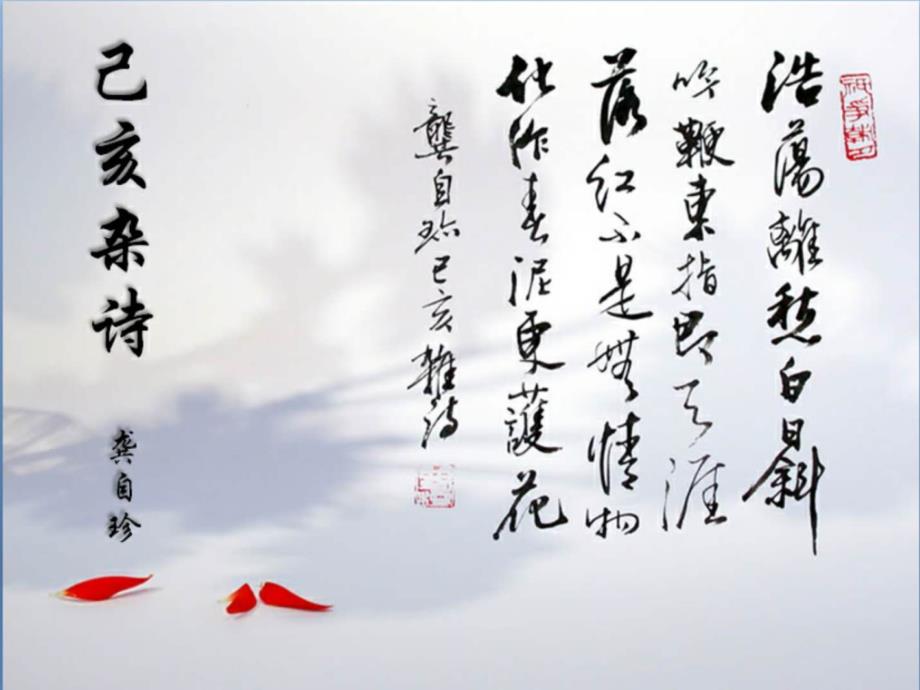 浩蕩離愁白日斜
吟鞭東指即天涯
落红不是無情物
化作春泥更護花
龔自珍己亥雜詩
己亥杂诗
龚自珍